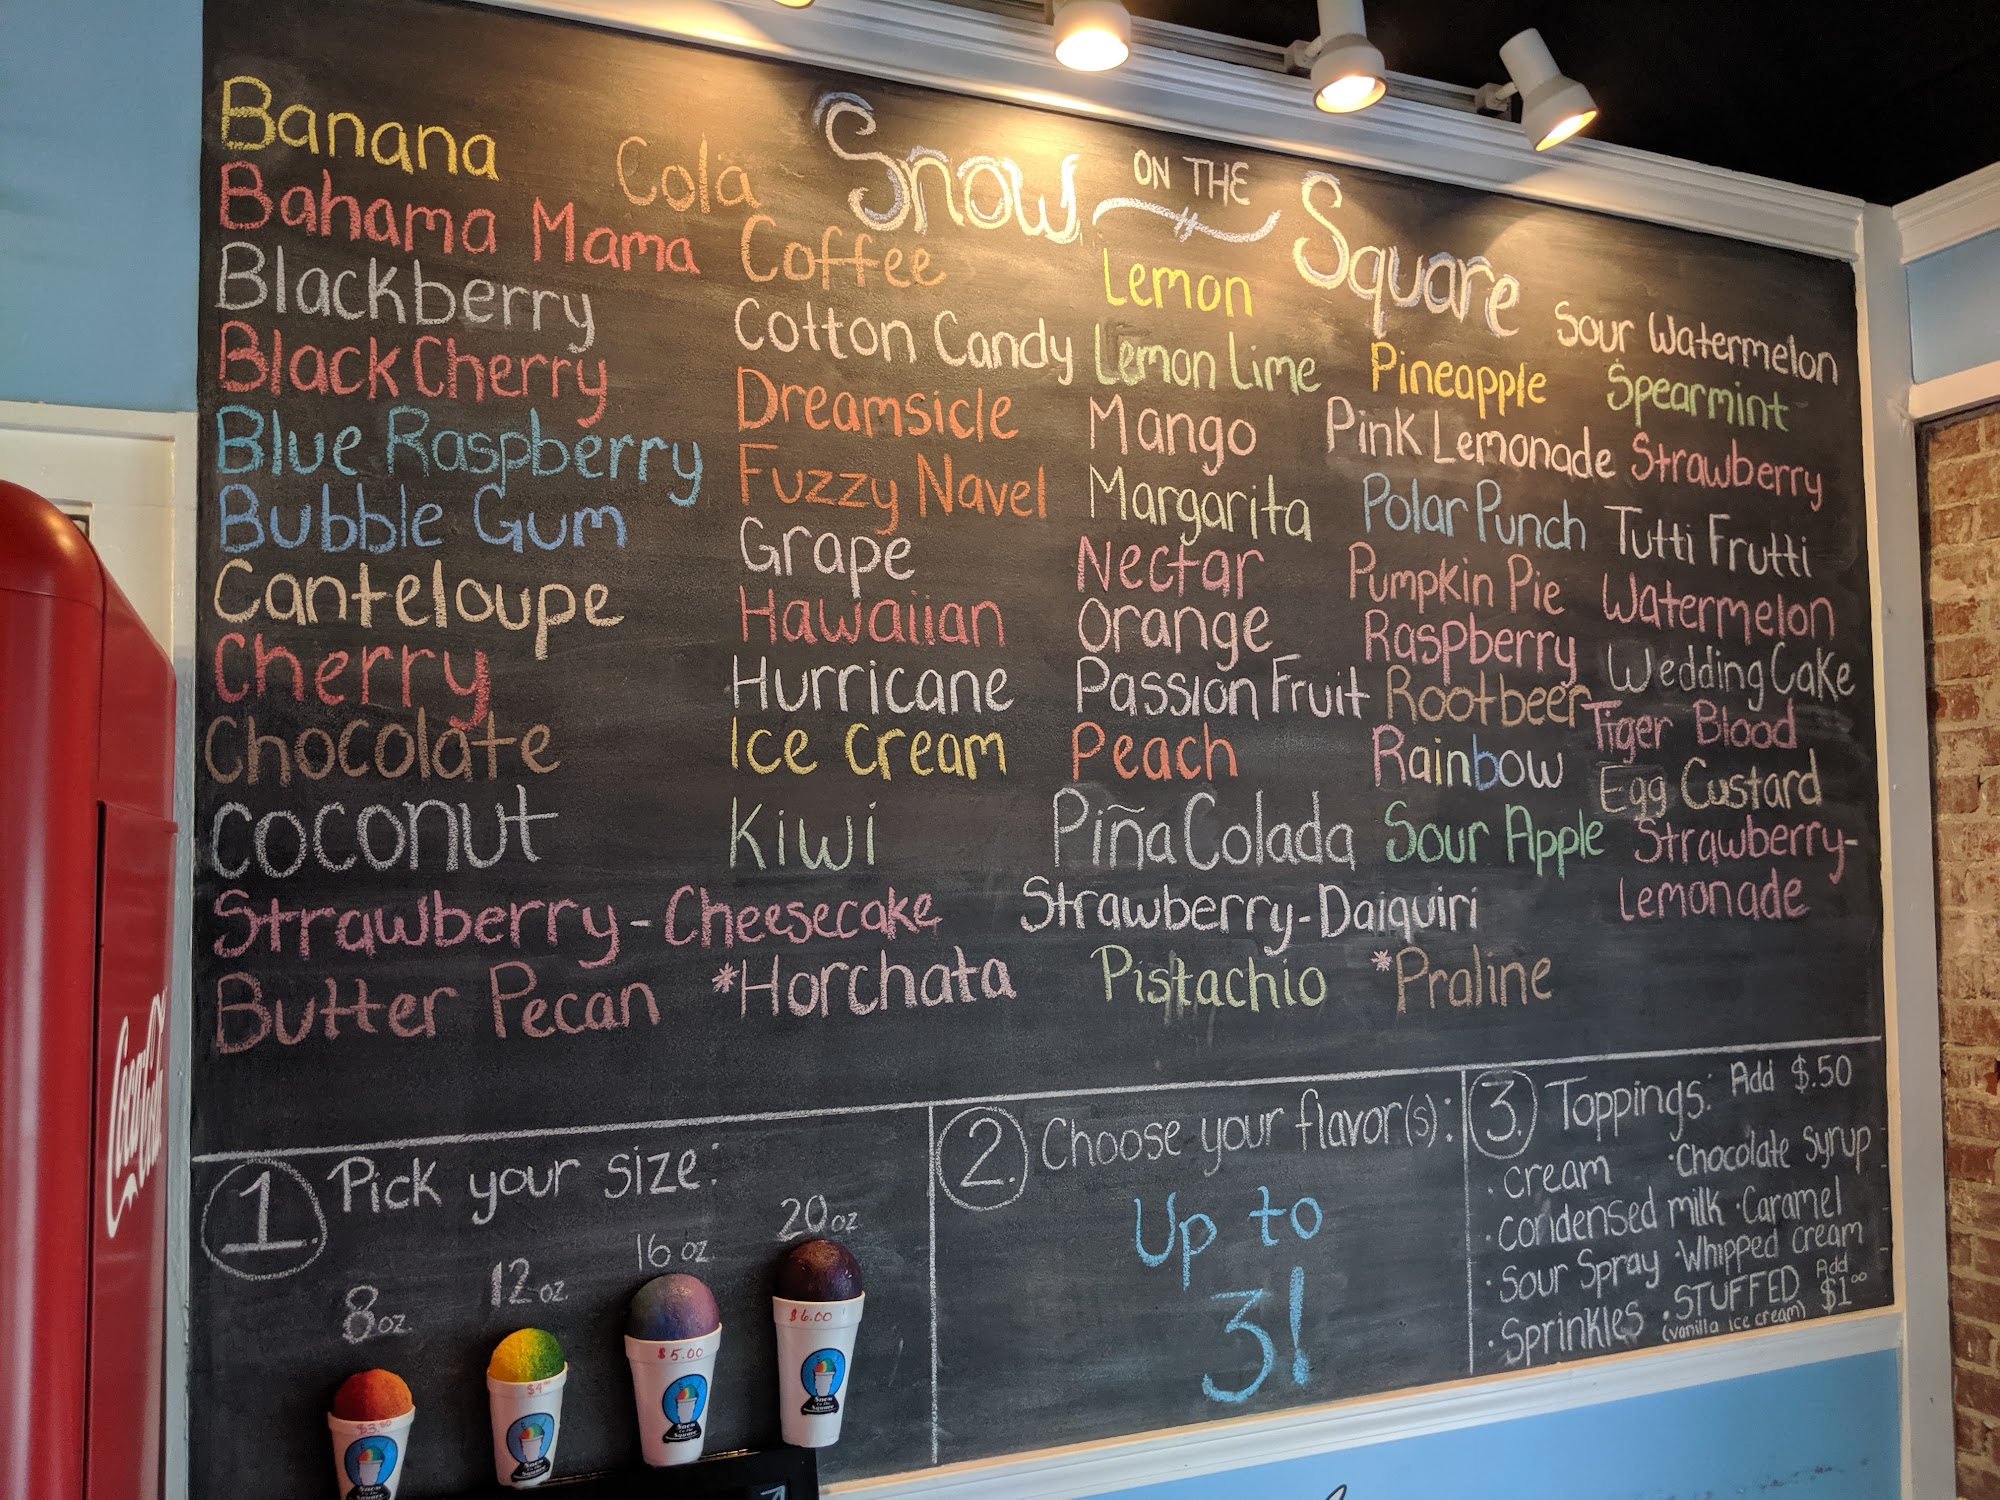 Snow ON THE Square
Banana
Bahama Mama
Blackberry
Black Cherry
Blue Raspberry
Bubble Gum
Canteloupe
Cherry
Chocolate
Coconut
Strawberry-Cheesecake
Butter Pecan
Cola
Coffee
Cotton Candy
Dreamsicle
Fuzzy Navel
Grape
Hawaiian
Hurricane
Ice Cream
Kiwi
*Horchata
Lemon
Lemon Lime
Mango
Margarita
Nectar
Orange
Passion Fruit
Peach
Piña Colada
Strawberry-Daiquiri
Pistachio
Pineapple
Pink Lemonade
Polar Punch
Pumpkin Pie
Raspberry
Rootbeer
Rainbow
Sour Apple
*Praline
Sour Watermelon
Spearmint
Strawberry
Tutti Frutti
Watermelon
Wedding Cake
Tiger Blood
Egg Custard
Strawberry-
Lemonade
1. Pick your size:
8 oz.
12 oz.
16 oz.
20 oz
$3.50
$4.00
$5.00
$6.00
Snow
On The
Square
Snow
On The
Square
2. Choose your flavor(s):
Up to
3!
3. Toppings: Add $.50
· cream · Chocolate Syrup
· condensed milk · Caramel
· Sour Spray · Whipped cream
· Sprinkles · STUFFED Add $1.00
(vanilla ice cream)
Coca-Cola